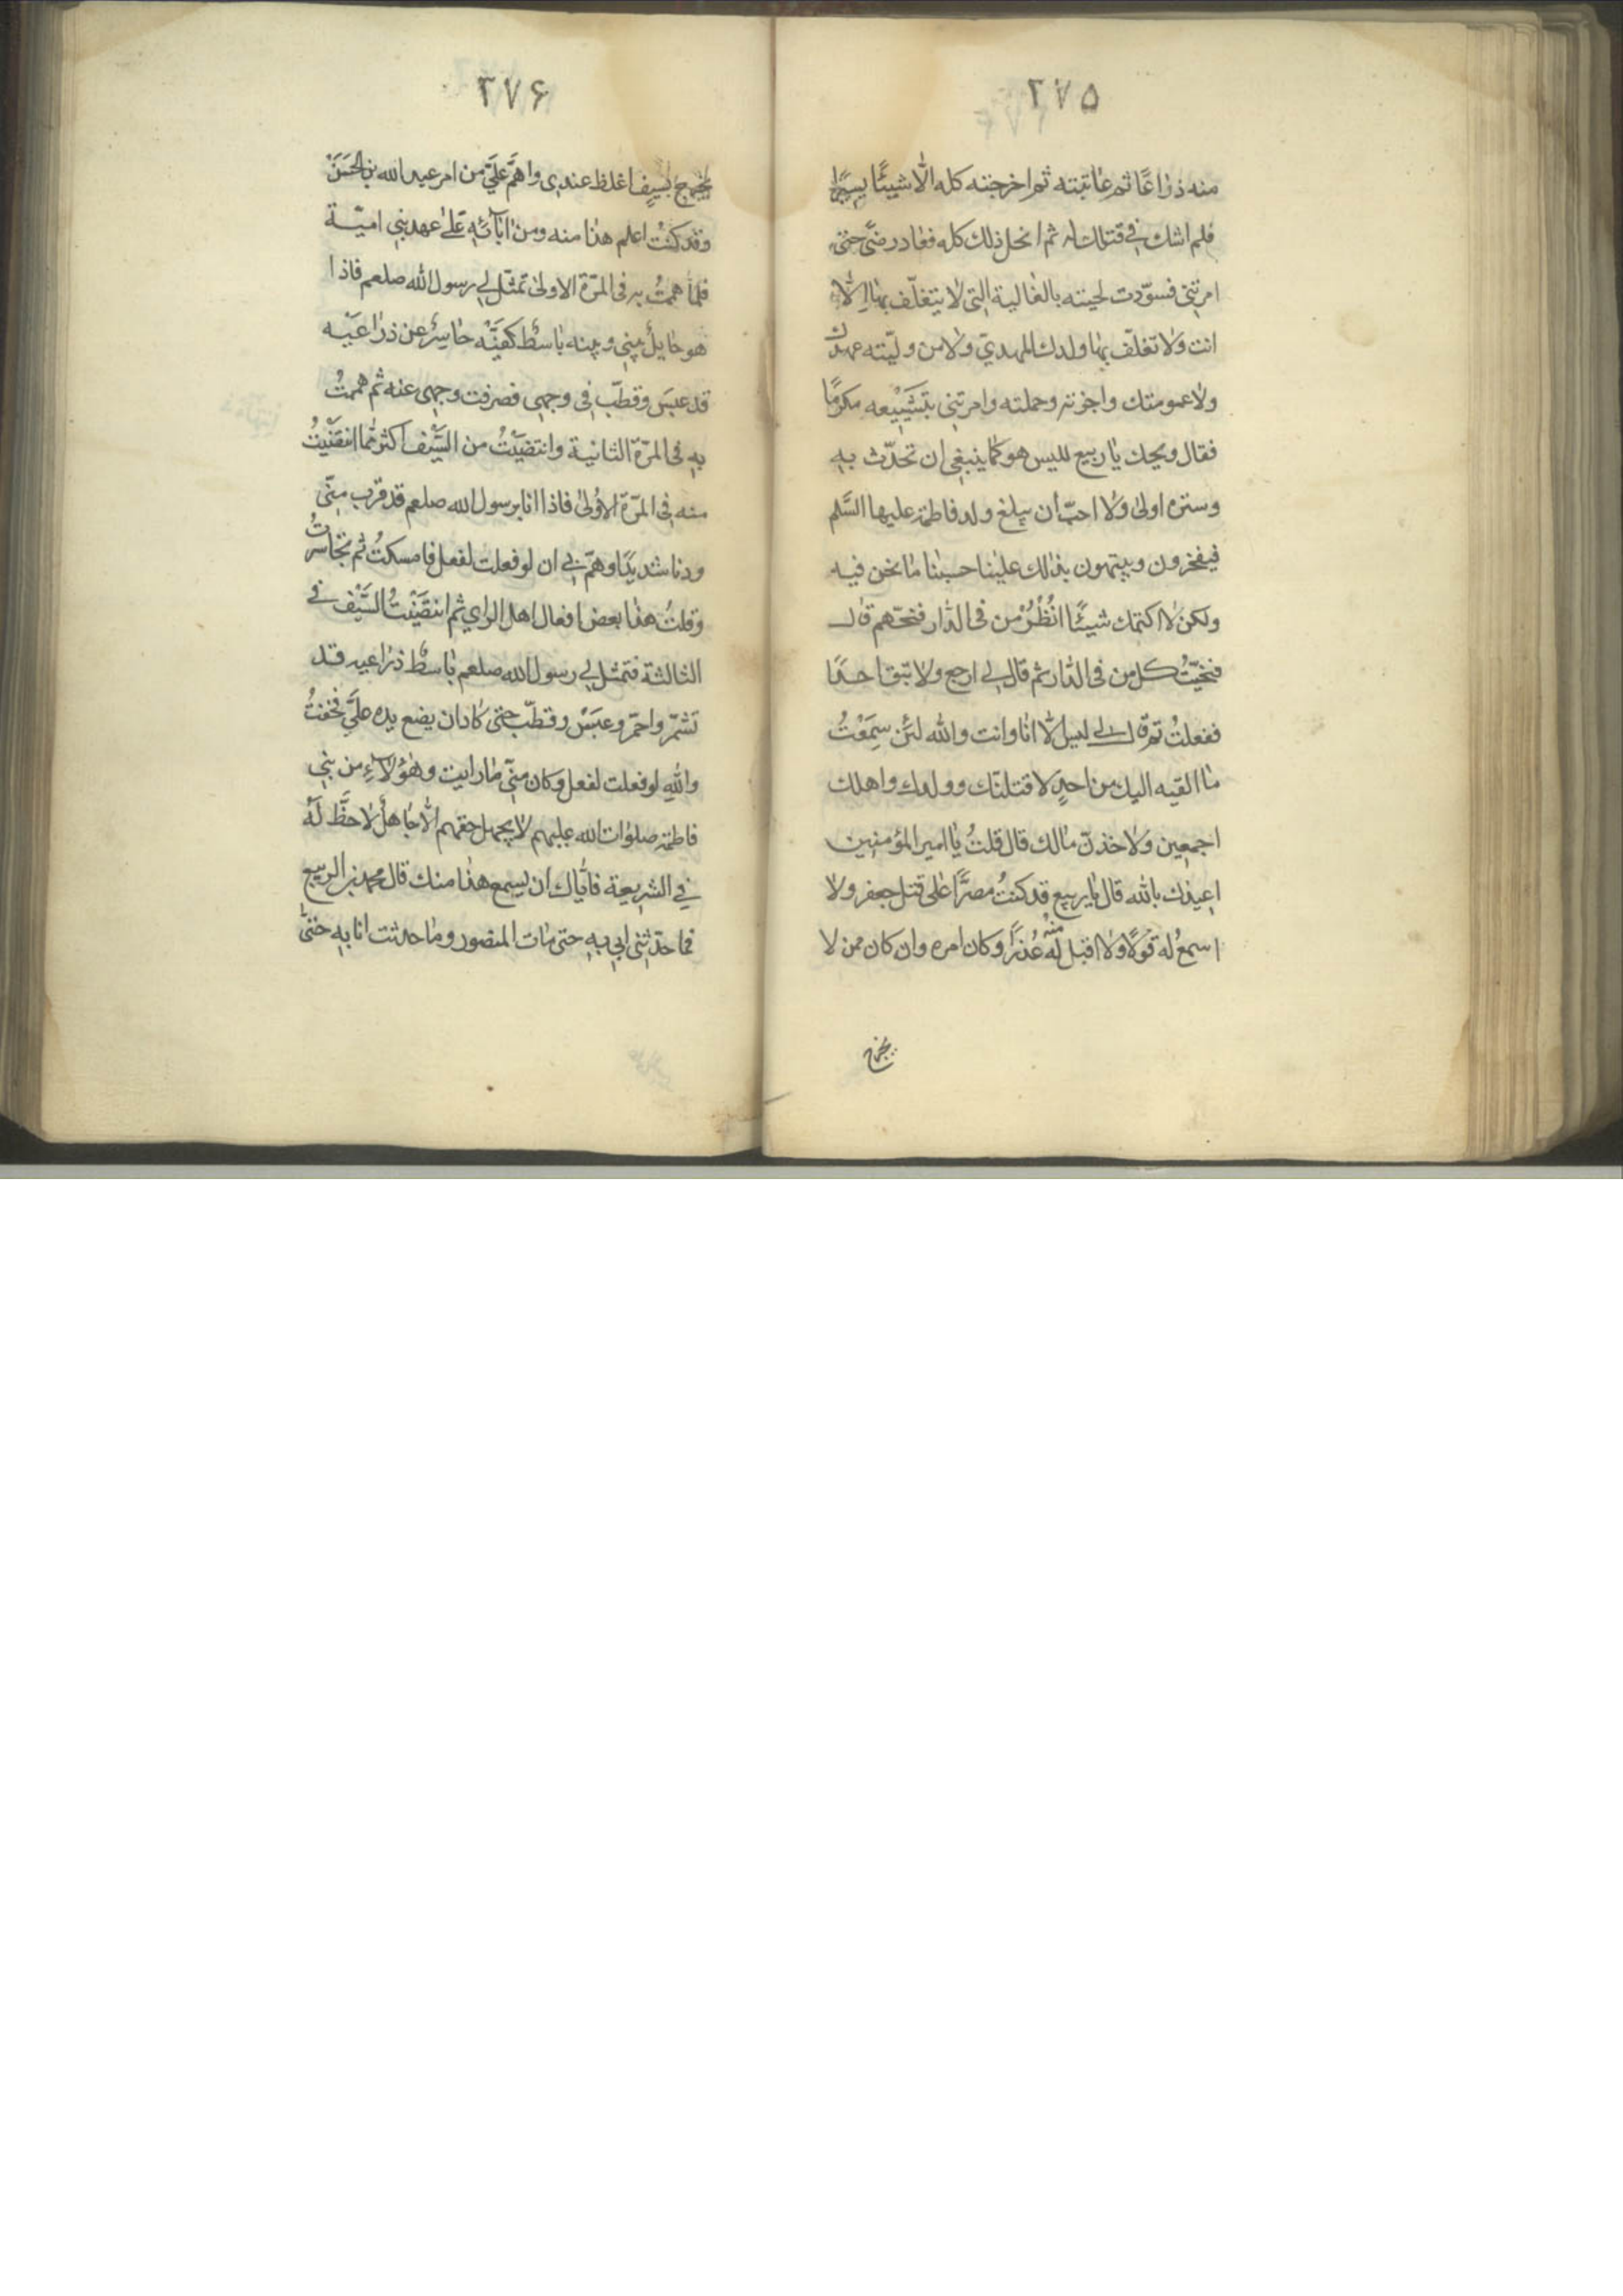 ٢٧۵
منه ذراعًا ثم عاتبته ثم اخرجته كله الّا شيئًا يسيرا
فلم اشك في قتلك له ثم انحل ذلك كله فعاد رضىً حتى
امرتنى فسوّدت لحيته بالغالية التى لا يتغلّف بها الّا
انت ولا تغلّف بها ولدك المهديّ ولا من وليّته عهدك
ولا عمومتك واجزته وحملته وامرتنى بتشييعه مكرمًا
فقال ويحك يا ربيع لليس هو كما ينبغى ان تحدّث به
وستره اولىٰ ولا احبّ ان يبلغ ولد فاطمة عليها السَّلم
فيفخرون ويتيهون بذلك علينا حسبنا ما نحن فيه
ولكن لا اكتمك شيئًا انْظُرْ من فى الدّار فنحّهم قال
فنحّيتُ كل من فى الدّار ثم قال لي ارجع ولا تبق احدًا
ففعلتُ ثم قال لي ليس الّا انا وانت والله لئن سمَعْتُ
ما القيه اليك من احدٍ لاقتلنّك وولدك واهلك
اجمعين ولاخذنّ مالك قال قلتُ يا امير المؤمنين
اعيذك بالله قال يا ربيع قد كنتُ مصرًّا على قتل جعفر ولا
اسمعُ له قولًا ولا اقبل لَهُ منْهُ عُذرًا وكان امره وان كان ممن لا
يخرج
٢٧۶
يخرج بسيفٍ اغلظ عندى واهمَّ علَيَّ من امر عبد الله بن الحَسَنْ
وقد كنتُ اعلم هذا منه ومن اٰبائهِ علىٰ عهد بني اميّة
فلمّا هممتُ به فى المرّة الاولىٰ تمثّل لي رسول الله صلعم فاذا
هو حايلٌ بيني وبينه باسطٌ كفيّه حاسرٌ عن ذراعيْه
قد عبسَ وقطّب فى وجهى فصرفت وجهى عنه ثم هممتُ
بهِ فى المرّة الثانية وانتضيْتُ من السّيف اكثر مّما انتقَيْتُ
منه فى المرّة الاوُلىٰ فاذا انا برسول الله صلعم قد قرب منّي
ودنا شديدًا وهمّ بي ان لو فعلت لفعل فامسكتُ ثم تجاسرتُ
وقلتُ هذا بعض افعال اهل الراي ثم انتقَيْتُ السَّيْف في
الثالثة فتمثل لي رسول الله صلعم باسطٌ ذراعيه قد
تشمّر واحمّر وعبَسْ وقطّب حتى كاد ان يضع يده علَيَّ فخفتُ
واللهِ لو فعلت لفعل وكان منّي ما رايت وهؤلاۤءِ من بني
فاطمة صلوات الله عليهم لا يجهل حقهم الّا جاهلٌ لا حظَّ لَهُ
في الشريعة فايّاك ان يسمع هذا منك قال محمد بن الربيع
فما حدّثنى ابي بهِ حتى مات المنصور وما حدثت انا بهِ حتىّ